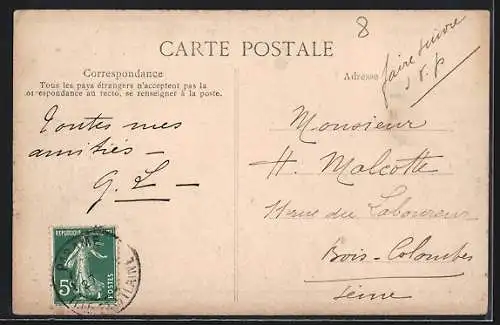 8
CARTE POSTALE
faire suivre
s.v.p
Correspondance
Tous les pays étrangers n'acceptent pas la
correspondance au recto, se renseigner à la poste.
Adresse
Toutes mes
amitiés —
G. L —
Monsieur
H. Malcotte
11 rue du Laboureur
Bois-Colombes
Seine
5
POSTES